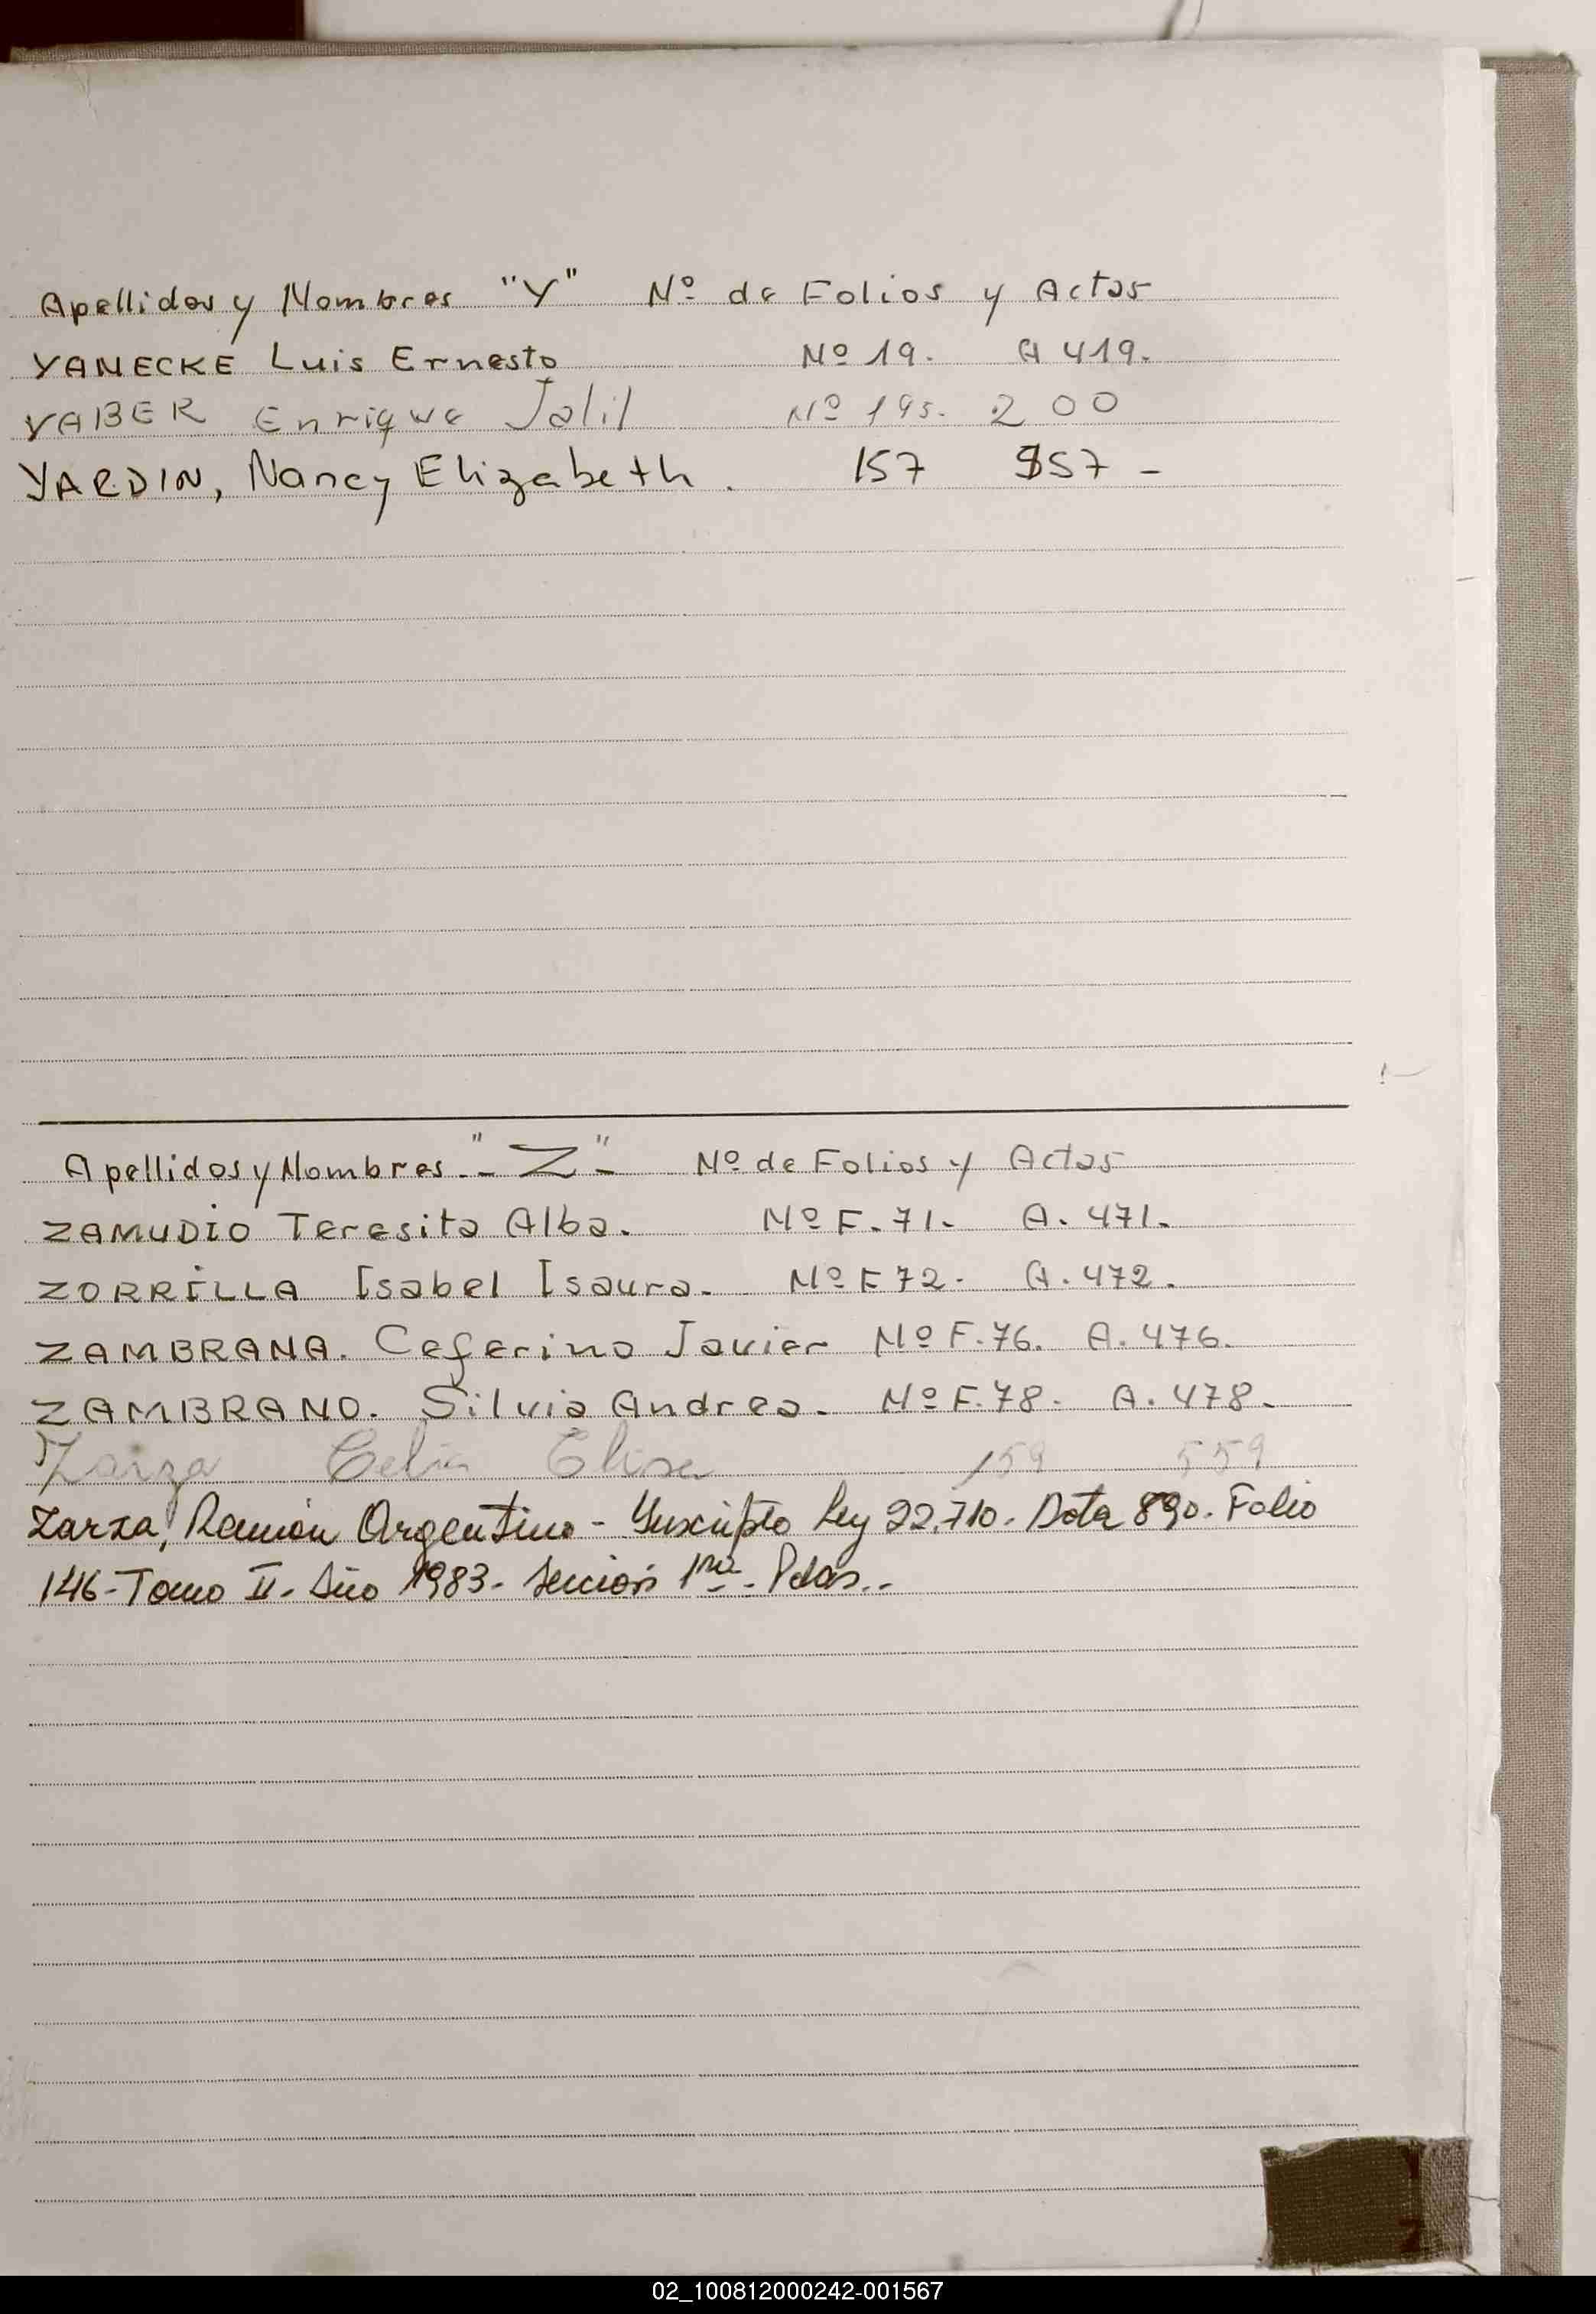 Apellidos y Nombres "Y" Nº de Folios y Actas
YANECKE Luis Ernesto Nº 19. A 419.
YABER Enrique Jalil Nº 195. 200
YARDIN, Nancy Elizabeth. 157 557 -
Apellidos y Nombres "- Z -" Nº de Folios y Actas
ZAMUDIO Teresita Alba. Nº F. 71. A. 471.
ZORRILLA Isabel Isaura. Nº F 72. A. 472.
ZAMBRANA. Ceferino Javier Nº F. 76. A. 476.
ZAMBRANO. Silvia Andrea. Nº F. 78. A. 478.
Zarza Celia Elisa 159 559
Zarza, Ramón Argentino - Inscripto Ley 22.710. Acta 890. Folio
146 - Tomo II. Año 1983. Sección 1ra. Pdas..
02_100812000242-001567